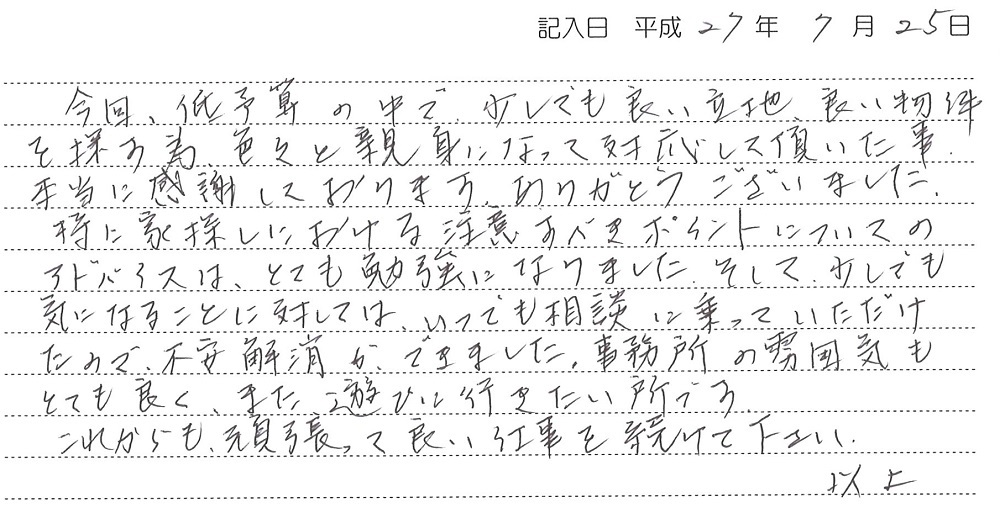 記入日 平成 27年 7月 25日
今回、低予算の中で、少しでも良い立地、良い物件
を探す為、色々と親身になって対応して頂いた事、
本当に感謝しております。ありがとうございました。
特に家探しにおける注意すべきポイントについての
アドバイスは、とても勉強になりました。そして、少しでも
気になることに対しては、いつでも相談に乗っていただけ
たので、不安解消ができました。事務所の雰囲気も
とても良く、また遊びに行きたい所です。
これからも、頑張って良い仕事を続けて下さい。
以上